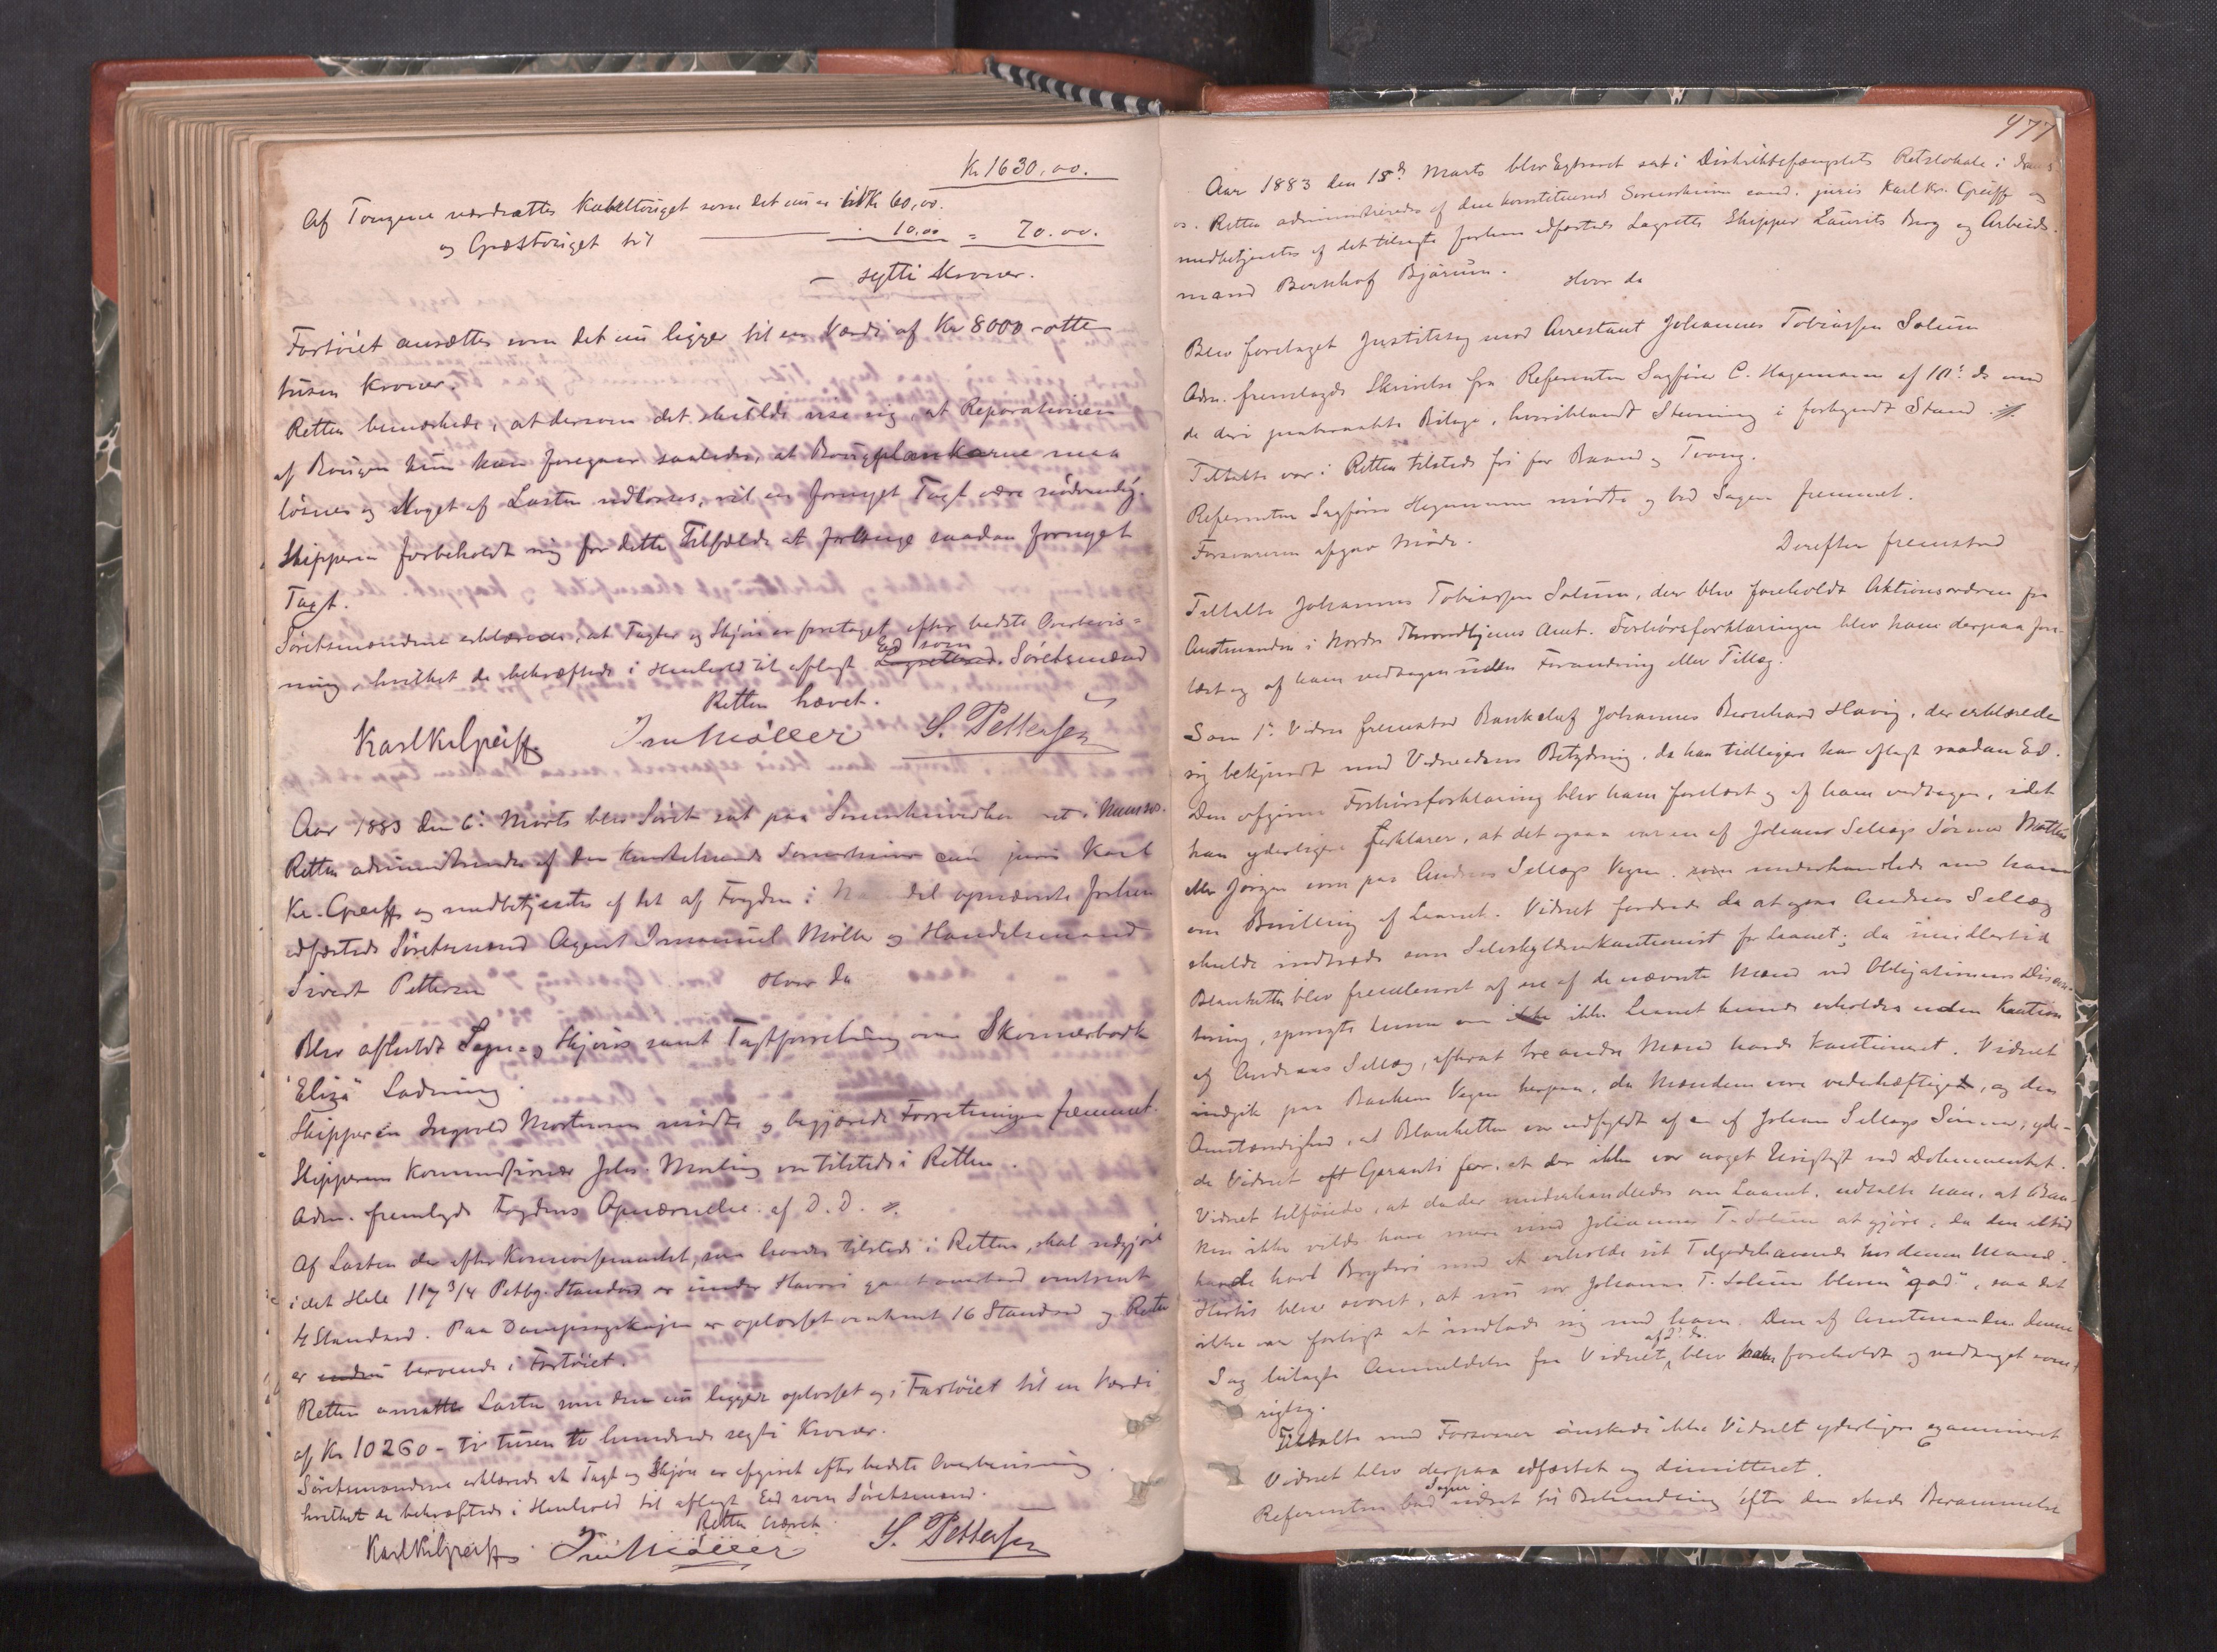 Kr 1630,00.
Af Tougene værdsættes Kabeltouget som det nu er til Kr 60,00.
og Græstouget til — 10.00 = 70.00.
— sytti Kroner.
Fartöiet ansættes som det nu ligger til en Værdi af Kr 8000 - otte
tusen Kroner.
Retten bemærkede, at dersom det skulde vise sig, at Reparationen
af Bougen kun kan foregaa saaledes, at Bougplankerne maa
løsnes og Noget af Lasten udlosses, vil en fornyet Taxt være nödvendig.
Skipperen forbeholdt sig for dette Tilfælde at forlange saadan fornyet
Taxt.
Söretsmændene erklærede, at Taxter og Skjön er foretaget efter bedste Overbevis=
ning, hvilket de bekræftede i Henhold til aflagt Ed som Söretsmænd
Retten hævet.
Karl Kr. Greiff. Im Möller S. Pettersen
Aar 1883 den 6. Marts blev Söret sat paa Sorenskriverkontoret i Namsos.
Retten administreredes af den konstituerede Sorenskriver cand juris Karl
Kr. Greiff og medbetjentes af det af Fogden i Namdal opnævnte forhen
edfæstede Söretsmænd Agent Immanuel Möller og Handelsmand
Sivert Pettersen Hvor da
Blev afholdt Syns- og Skjöns samt Taxtforretning over Skonnertbark
"Eliza" Ladning.
Skipperen Ingvald Mortensen mødte og begjærede Forretningen fremmet.
Skipperens Kommissionær Johs. Merling var tilstede i Retten.
Adm. fremlagde Fogdens Opnævnelse af D.D. //.
Af Lasten der efter Konnossementet, som havdes tilstede i Retten, skal udgjöre
i det Hele 117 3/4 Petbg. Standard er under Havari gaaet overbord omtrent
4 Standard. Paa Dampsagskajen er oplosset omtrent 16 Standard og Resten
er endnu beroende i Fartöiet.
Retten ansatte Lasten som den nu ligger oplosset og i Fartöiet til en Værdi
af Kr 10260 - ti tusen to hundrede segti Kroner.
Söretsmændene erklærede at Taxt og Skjön er afgivet efter bedste Overbevisning
hvilket de bekræftede i Henhold til aflagt Ed som Söretsmænd.
Retten hævet
Karl Kr. Greiff. Im Möller S. Pettersen
477
Aar 1883 den 15d Marts blev Extraret sat i Distriktsfængslets Retslokale i Nams
os. Retten administreredes af den konstituerede Sorenskriver cand. juris Karl Kr. Greiff og
medbetjentes af det tilsagte forhen edfæstede Lagrette Skipper Laurits Berg og Arbeids-
mand Bernhof Bjørum. Hvor da
Blev foretaget Justitssag mod Arrestant Johannes Tobiassen Solum
Adm. fremlagde Skrivelse fra Referenten Sagfører C. Hagemann af 10d ds med
de deri paaberaabte Bilage, hvoriblandt Stevning i forkyndt Stand //.
Tiltalte var i Retten tilstede fri for Baand og Tvang.
Referenten Sagfører Hagemann mødte og bad Sagen fremmet.
Forsvareren afgav Møde. Derefter fremstod
Tiltalte Johannes Tobiassen Solum, der blev foreholdt Aktionsordren fra
Amtmanden i Nordre Throndhjems Amt. Forhörsforklaringen blev ham derpaa fore-
læst og af ham vedtagen uden Forandring eller Tillæg.
Som 1te Vidne fremstod Bankchef Johannes Bernhard Havig, der erklærede
sig bekjendt med Vidneedens Betydning, da han tidligere har aflagt saadan Ed.
Den afgivne Forhörsforklaring blev ham forelæst og af ham vedtagen, idet
han yderligere forklarer, at det ogsaa var en af Johans Sellægs Sønner Mathias
eller Jørgen som paa Andreas Sellægs Vegne underhandlede med ham
om Bevilling af Laanet. Vidnet fordrede da at ogsaa Andreas Sellæg
skulde indtræde som Selvskyldnerkautionist for Laanet; da imidlertid
Blanketten blev fremleveret af en af de nævnte Mænd ved Obligationens Diskon-
tering, spurgte denne om ikke Laanet kunde erholdes uden Kaution
af Andreas Sellæg, efterat tre andre Mænd havde kautioneret. Vidnet
indgik paa Bankens Vegne herpaa, da Mændene vare vederhæftige, og den
Omstændighed, at Blanketten var udfyldt af en af Johan Sellægs Sønner, yde-
de Vidnet oft Garanti for, at der ikke var noget Urigtigt ved Dokumentet.
Vidnet tilföiede, at da der underhandledes om Laanet, udtalte han, at Ban-
ken ikke vilde have mere med Johannes T. Solum at gjöre, da den altid
havde havt Bryderi med at erholde sit Tilgodehavende hos denne Mand.
Hertil blev svaret, at nu var Johannes T. Solum bleven "god", saa det
ikke var farligt at indlade sig med ham. Den af Amtmanden denne
Sag bilagte Anmeldelse fra Vidnet af d. ds. blev ham foreholdt og vedtaget som
rigtig.
Tiltalte med Forsvarer ønskede ikke Vidnet yderligere examineret
Vidnet blev derpaa edfæstet og dimitteret.
Referenten bad Sagen udsat til Behandling efter den skede Berammelse